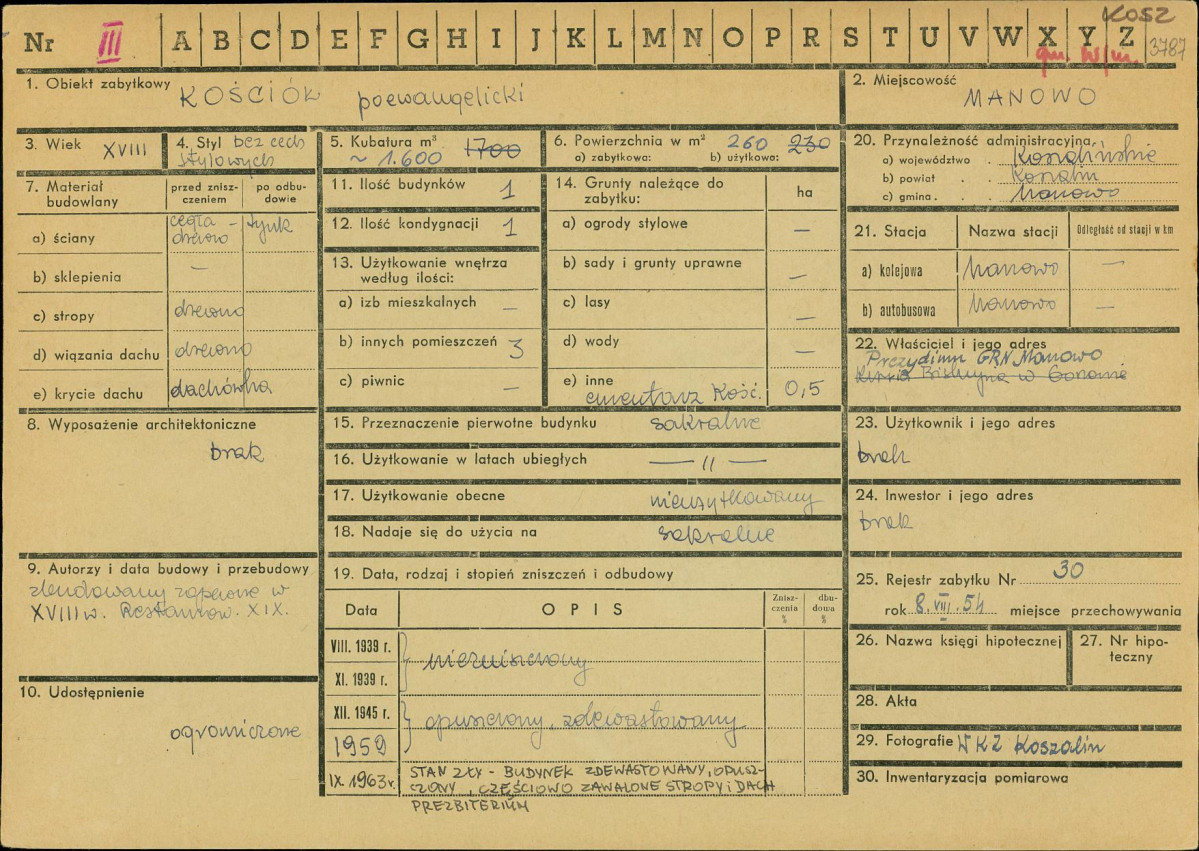 KOSZ
Nr III A B C D E F G H I J K L M N O P R S T U V W X Y Z 3787
gm. w/m.
1. Obiekt zabytkowy KOŚCIÓŁ poewangelicki
2. Miejscowość
MANOWO
3. Wiek XVIII
4. Styl bez cech
stylowych
5. Kubatura m³
~ 1.600 1700
6. Powierzchnia w m² 260 230
a) zabytkowa: b) użytkowa:
7. Materiał budowlany
przed zniszczeniem
po odbudowie
a) ściany cegła – drewno tynk
b) sklepienia —
c) stropy drewno
d) wiązania dachu drewno
e) krycie dachu dachówka
8. Wyposażenie architektoniczne
brak
9. Autorzy i data budowy i przebudowy
zbudowany zapewne w
XVIII w. Restaurow. XIX.
10. Udostępnienie
ograniczone
11. Ilość budynków 1
12. Ilość kondygnacji 1
13. Użytkowanie wnętrza
według ilości:
a) izb mieszkalnych —
b) innych pomieszczeń 3
c) piwnic —
14. Grunty należące do
zabytku:
ha
a) ogrody stylowe —
b) sady i grunty uprawne —
c) lasy —
d) wody —
e) inne
cmentarz Kość. 0,5
15. Przeznaczenie pierwotne budynku sakralne
16. Użytkowanie w latach ubiegłych — 〃 —
17. Użytkowanie obecne nieużytkowany
18. Nadaje się do użycia na sakralne
19. Data, rodzaj i stopień zniszczeń i odbudowy
Data
OPIS
Zniszczenia %
dbudowa %
VIII. 1939 r.
XI. 1939 r.
niezniszczony
XII. 1945 r.
1959
opuszczony, zdewastowany
IX 1963 r.
STAN ZŁY - BUDYNEK ZDEWASTOWANY, OPUSZ-
CZONY, CZĘŚCIOWO ZAWALONE STROPY I DACH
PREZBITERIUM
20. Przynależność administracyjna
a) województwo Koszalińskie
b) powiat Koszalin
c) gmina Manowo
21. Stacja
Nazwa stacji
Odległość od stacji w km
a) kolejowa Manowo —
b) autobusowa Manowo —
22. Właściciel i jego adres
Prezydium GRN Manowo
Kuria Biskupia w Gorzowie
23. Użytkownik i jego adres
brak
24. Inwestor i jego adres
brak
25. Rejestr zabytku Nr 30
rok 8. VIII. 54 miejsce przechowywania
26. Nazwa księgi hipotecznej
27. Nr hipoteczny
28. Akta
29. Fotografie WKZ Koszalin
30. Inwentaryzacja pomiarowa